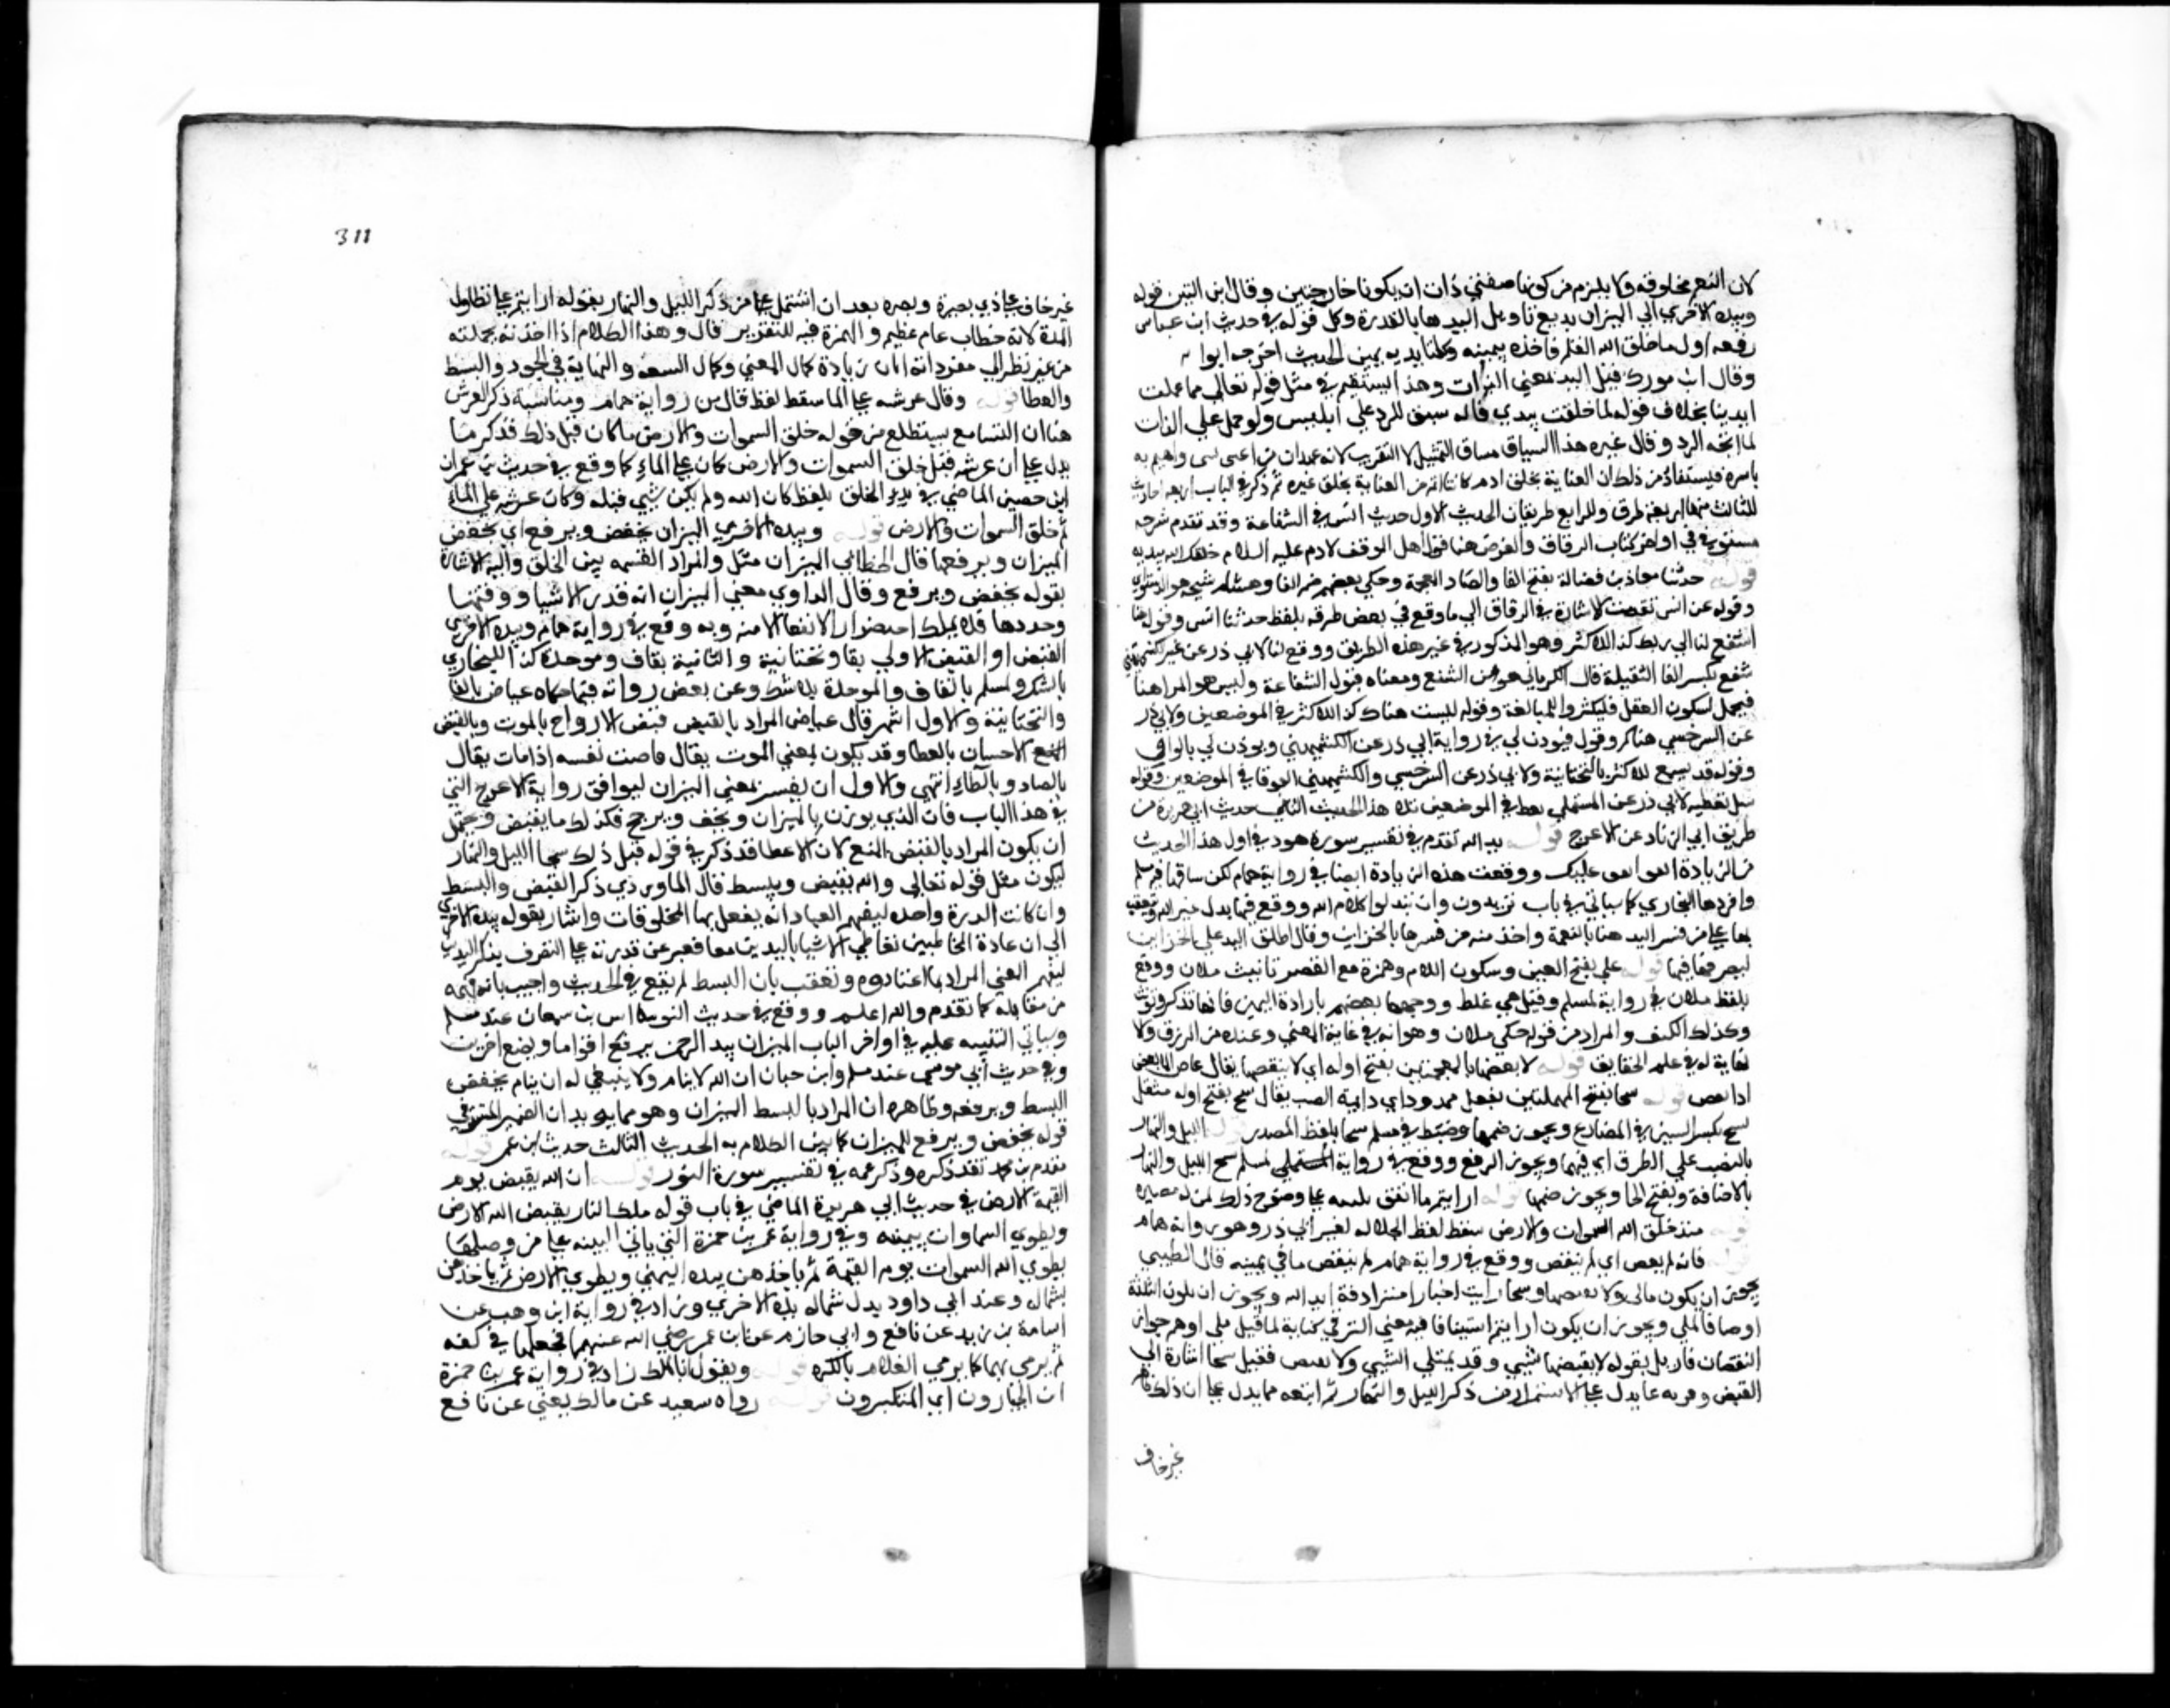 لان النعم مخلوقة ولا يلزم من كونهما صفتي ذات ان يكونا جارحتين وقال ابن التين قوله
وبيده الاخري الي الميزان يدفع تاويل اليد هنا بالقدرة وكذا قوله في حديث ابن عباس
رفعه اول ما خلق الله القلم فاخذه بيمينه وكلتا يديه يمين الحديث
وقال ابن فورك قيل اليد بمعني الذات وهذا يستقيم في مثل قوله تعالي مما عملت
ايدينا بخلاف قوله لما خلقت بيدي فانه سيق للرد علي ابليس ولو حمل علي الذات
لما اتجه الرد وقال غيره هذا السياق مساق التمثيل للتقريب لانه عهد ان من اعتني بشي واهتم به
باشره فيستفاد من ذلك ان العناية بخلق ادم كانت اتم من العناية بخلق غيره ثم ذكر في الباب اربعة احاديث
للثالث منها اربعة طرق وللرابع طريقان الحديث الاول حديث انس في الشفاعة وقد تقدم شرحه
مستوفي في اواخر كتاب الرقاق والغرض هنا قول اهل الموقف لادم عليه السلام خلقك الله بيده
قوله حدثنا معاذ بن فضالة بفتح الفا والضاد المعجمة وحكي بعضهم ضم الفا وهشام شيخه هو الدستوائي
وقوله عن انس تقدمت الاشارة في الرقاق الي ما وقع في بعض طرقه بلفظ حدثنا انس وقوله هنا
اشفع لنا الي ربك كذا للاكثر وهو المذكور في غير هذه الطريق ووقع لنا لابي ذر عن غير الكشميهني
شفع بكسر الفا الثقيلة قال الكرماني هو من التشفيع ومعناه قبول الشفاعة وليس هو المراد هنا
فيحمل
عن السرخسي هناكم وقوله فيوذن لي في رواية ابي ذر عن الكشميهني ويوذن لي بالواو
وقوله قد يسمع للاكثر بالتحتانية ولابي ذر عن السرخسي والكشميهني بالفوقانية في الموضعين وقوله
سل تعطه لابي ذر عن المستملي تعط في الموضعين بلا ها الحديث الثاني حديث ابي هريرة من
طريق ابي الزناد عن الاعرج قوله يد الله تقدم في تفسير سورة هود في اول هذا الحديث
من الزيادة انفق انفق عليك ووقعت هذه الزيادة ايضا في رواية همام لكن ساقها فيه مسلم
وافردها البخاري كما سياتي في باب يريدون ان يبدلوا كلام الله ووقع فيها بدل
بها علي من فسر اليد هنا بالنعمة واخذ منه من فسرها بالخزائن وقال اطلق اليد علي الخزائن
لتصرفه فيها قوله ملاي بفتح الميم وسكون اللام وهمزة مع القصر تانيث ملان ووقع
بلفظ ملان في رواية لمسلم وقيل هي غلط ووجهها بعضهم بارادة اليمين فانها تذكر وتونث
وكذلك الكف والمراد من قوله ملاي او ملان وهو انه في غاية الغني وعنده من الرزق ما لا
نهاية له في علم الخلايق قوله لا يغيضها بالمعجمتين بفتح اوله اي لا ينقصها يقال غاض الماء يغيض
اذا نقص قوله سحا بفتح المهملتين مثقل ممدود اي دايمة الصب يقال سح بفتح اوله مثقل
يسح بكسر السين في المضارع ويجوز ضمها وضبط في مسلم سحا بلفظ المصدر قوله الليل والنهار
بالنصب علي الظرف اي فيهما ويجوز الرفع ووقع في رواية لمسلم سح الليل والنهار
بالاضافة وبفتح الحا ويجوز ضمها قوله ارايتم ما انفق تنبيه علي وضوح ذلك لمن له بصيرة
قوله منذ خلق الله السموات والارض سقط لفظ الجلالة لغير ابي ذر وهو رواية همام
قوله فانه لم يغض اي لم ينقص ووقع في رواية همام لم ينقص ما في يمينه قال الطيبي
يجوز ان يكون ملاي ولا يغيضها وسحا وارايت اخبارا مترادفة ليد الله ويجوز ان تكون الثلثة
اوصافا لملاي ويجوز ان يكون ارايتم استينافا فيه معني الترقي كانه لما قيل ملاي اوهم جواز
النقصان فازيل بقوله لا يغيضها شي وقد يمتلي الشي ولا يغيض فقيل سحا اشارة الي
الفيض وقرنه بما يدل علي الاستمرار من ذكر الليل والنهار ثم اتبعه بما يدل علي ان ذلك ظاهر
غير خاف
311
غير خاف علي ذي بصر وبصيرة بعد ان اشتمل علي ما من ذكر الليل والنهار بقوله ارايتم علي تطاول
المدة لانه خطاب عام عظيم والهمزة فيه للتقرير قال وهذا الكلام اذا اخذته بجملته
من غير نظر الي مفرداته ابان زيادة كمال الغني وكمال السعة والنهاية في الجود والبسط
والعطا قوله وقال عرشه علي الما سقط لفظ قال من رواية همام ومناسبة ذكر العرش
هنا ان السامع يستطلع من قوله خلق السموات والارض ما كان قبل ذلك فذكر ما
يدل علي ان عرشه قبل خلق السموات والارض كان علي الماء كما وقع في حديث عمران
ابن حصين الماضي في بدء الخلق بلفظ كان الله ولم يكن شي قبله وكان عرشه علي الماء
ثم خلق السموات والارض قوله وبيده الاخري الميزان يخفض ويرفع اي يخفض
الميزان ويرفعها قال الخطابي الميزان مثل والمراد القسمة بين الخلق واليه الاشارة
بقوله يخفض ويرفع وقال الداودي معني الميزان انه قدر الاشيا ووقتها
وحددها فلا يملك احد ضرا ولا نفعا الا منه وبه ووقع في رواية همام وبيده الاخري
الفيض او القبض الاولي بفا وتحتانية والثانية بقاف وموحدة كذا للبخاري
بالشك ولمسلم بالقاف والموحدة بلا شك وعن بعض رواته فيما حكاه عياض بالفا
والتحتانية والاول اشهر قال عياض المراد بالقبض قبض الارواح بالموت وبالفيض
الاحسان بالعطا وقد يكون بمعني الموت يقال فاضت نفسه اذا مات يقال
بالضاد وبالظاء انتهي والاول ان يفسر بمعني الميزان ليوافق رواية الاعرج التي
في هذا الباب فان الذي يوزن بالميزان يخف ويرجح فكذلك ما يقبض ويحتمل
ان يكون المراد بالقبض المنع لان الاعطا قد ذكر في قوله قبل ذلك سحا الليل والنهار
ليكون مثل قوله تعالي والله يقبض ويبسط
وان كانت القدرة واحدة ليفهم العباد انه يفعل بها المختلفات واشار بقوله بيده الاخري
الي ان عادة المخاطبين تعاطي الاشيا باليدين معا فعبر عن قدرته علي التصرف بذكر اليدين
ليفهم المعني المراد بما اعتادوه وتعقب بان البسط لم يقع في الحديث واجيب بانه فهمه
من مقابله كما تقدم والله اعلم ووقع في حديث النواس بن سمعان عند مسلم
وسياتي التنبيه عليه في اواخر الباب الميزان بيد الرحمن يرفع اقواما ويضع اخرين
وفي حديث ابي موسي عند مسلم وابن حبان ان الله لا ينام ولا ينبغي له ان ينام يخفض
القسط ويرفعه وظاهره ان المراد بالقسط الميزان وهو مما يويد ان الضمير المستتر في
قوله يخفض ويرفع للميزان كما بين الكلام به الحديث الثالث حديث ابن عمر قوله
مقدم بن محمد تقدم ذكره وذكر عمه في تفسير سورة النور قوله ان الله يقبض يوم
القيمة الارض في حديث ابي هريرة الماضي في باب قوله ملك الناس يقبض الله الارض
ويطوي السماوات بيمينه وفي رواية عمر بن حمزة التي ياتي التنبيه علي من وصلها
يطوي الله السموات يوم القيمة ثم ياخذهن بيده اليمني ويطوي الارض ثم ياخذهن
بشماله وعند ابي داود بدل شماله بيده الاخري وزاد في رواية ابن وهب عن
اسامة بن زيد عن نافع وابي حازم عن ابن عمر رضي الله عنهما فيجعلهما في كفه
ثم يرمي بهما كما يرمي الغلام بالكرة قوله ويقول انا الملك زاد في رواية عمر بن حمزة
اين الجبارون اين المتكبرون قوله رواه سعيد عن مالك يعني عن نافع